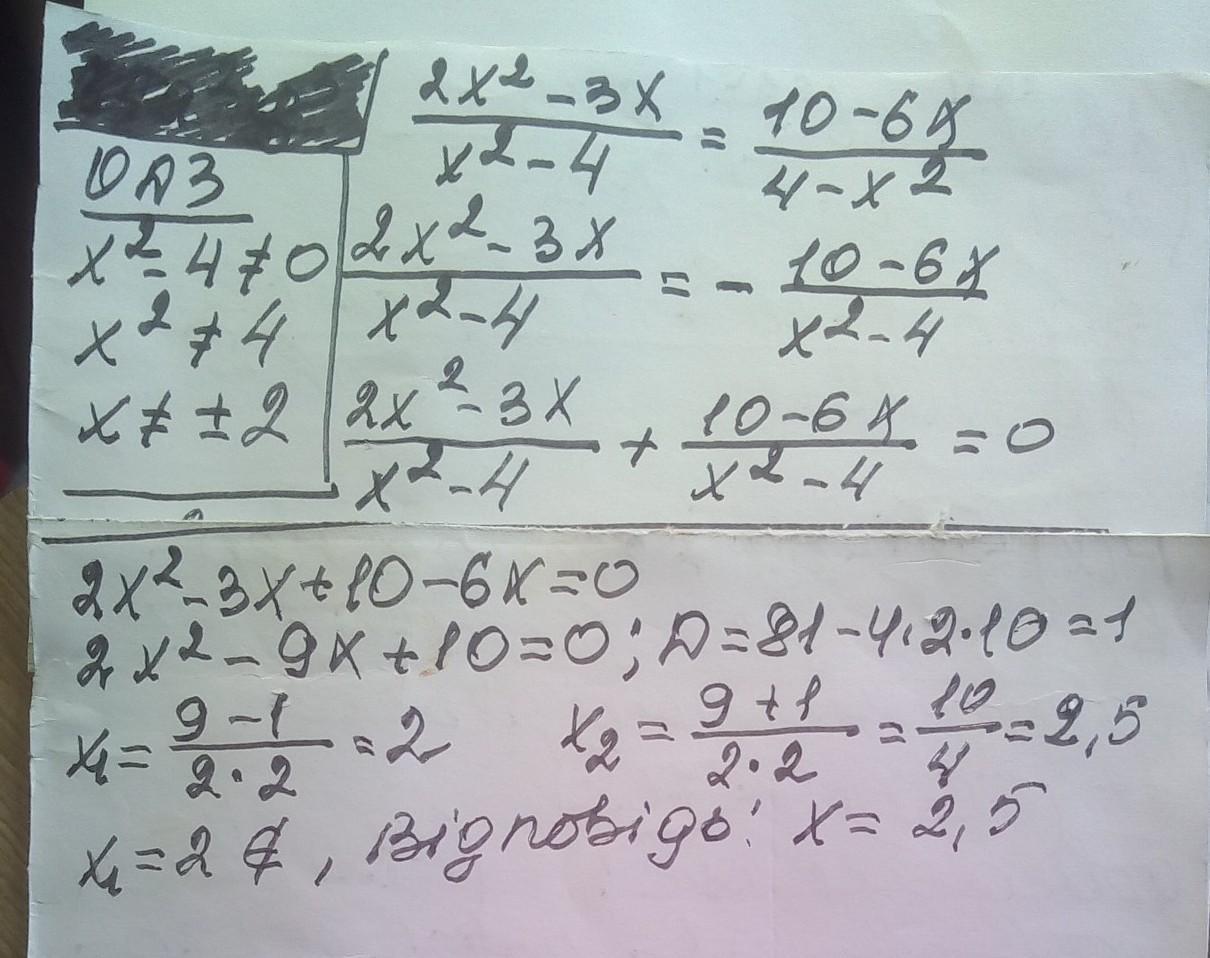 ОДЗ
x² - 4 ≠ 0
x² ≠ 4
x ≠ ± 2
(2x² - 3x)/(x² - 4) = (10 - 6x)/(4 - x²)
(2x² - 3x)/(x² - 4) = - (10 - 6x)/(x² - 4)
(2x² - 3x)/(x² - 4) + (10 - 6x)/(x² - 4) = 0
2x² - 3x + 10 - 6x = 0
2x² - 9x + 10 = 0; D = 81 - 4·2·10 = 1
x₁ = (9 - 1)/(2·2) = 2 x₂ = (9 + 1)/(2·2) = 10/4 = 2,5
x₁ = 2 ∉, Відповідь: x = 2,5